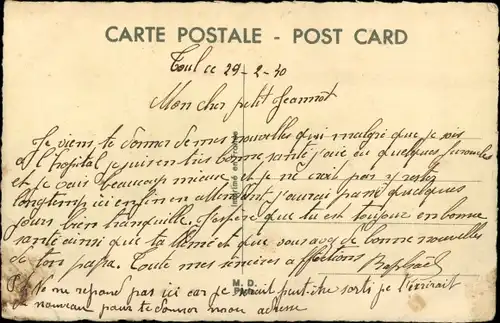 CARTE POSTALE - POST CARD
Toul ce 29-2-40
Mon cher petit Jeannot
Je viens te donner de mes nouvelles qui malgré que je sois
à l'hopital je suis en très bonne santé j'ai eu quelques furoncles
et je vais beaucoup mieux et je ne crois pas y rester
longtemps ici enfin en attendant j'aurai passé quelques
jours bien tranquille. J'espère que tu est toujour en bonne
santé ainsi que ta et que vous avez de bonne nouvelles
de ton papa. Toute mes sincères affections
Raphaël
Ne me repond pas ici car je serait peut-être sorti je t'écrirait
de nouveau pour te donner mon adresse
Imprimé en
M. D.
PARIS